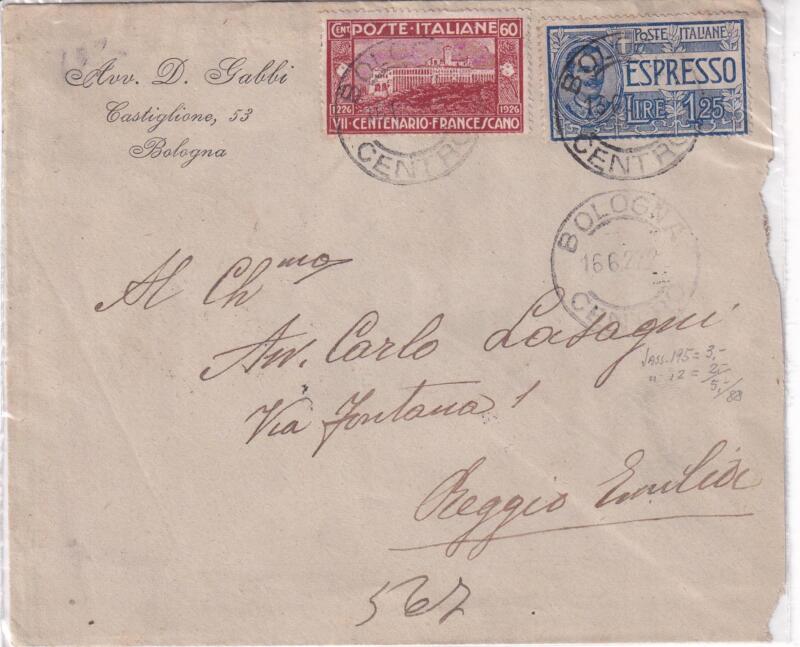 Avv. D. Gabbi
Castiglione, 53
Bologna
CENT. POSTE·ITALIANE 60
1226 1926
VII·CENTENARIO·FRANCESCANO
BOLOGNA
CENTRO
POSTE ITALIANE
ESPRESSO
LIRE 1,25
BOL
CENTRO
BOLOGNA
16.6.27
CENTRO
Al Ch mo
Avv. Carlo Lasagni
Via Fontana 1
Reggio Emilia
Sass. 195 = 3,-
" 12 = 2,-
5,-/88
567